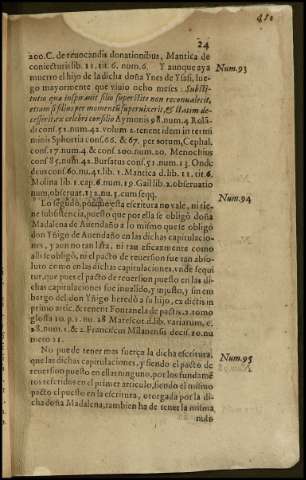 410
24
200. C. de reuocandis donationibus, Mantica de
coniecturis lib. 11. tit. 6. num. 6. Y aunque aya
muerto el hijo de la dicha doña Ynes de Ysasi, lue-
go mayormente que viuio ocho meses: Substi-
tutio quæ inspirauit filio superstite non reconualescit,
etiam si filius per momentũ superuixerit, & statim de-
cesserit ex celebri consilio Aymonis 98. num. 4. Rolã-
di conf. 51. num. 42. volum. 2. tenent idem in termi
minis Sphortia conf. 66. & 67. per totum, Cephal.
conf. 17. num. 4. & conf. 100. num. 20. Menochius
conf 85. num. 41. Bursatus conf. 51. num. 13. Onde
deus conf. 60. nu. 41. lib. 1. Mantica d. lib. 11. tit. 6.
Molina lib. 1. cap. 6. num. 19. Gail lib. 2. obseruatio
num, obseruat. 132. nu. 3. cum seqq.
Lo segũdo, porque esta escritura no vale, ni tie-
ne subsistencia, puesto que por ella se obligò doña
Madalena de Auendaño a lo mismo que se obligò
don Yñigo de Auendaño en las dichas capitulacio-
nes, y aun no tan lata, ni tan eficazmente como
alli se obligò, ni el pacto de reuersion fue tan abso-
luto como en las dichas capitulaciones, vnde sequi
tur, que pues el pacto de reuersion puesto en las di-
chas capitulaciones fue inualido, y injusto, y sin em
bargo del don Yñigo heredò a su hijo, ex dictis in
primo artic. & tenent Fontanela de pactis 2. tomo
glossa 10. p. 1. nu. 28 Marescot. d. lib. variarum, c.
28. num. 1. & 2. Franciscus Milanensis decis. 10. nu
mero 21.
No puede tener mas fuerça la dicha escritura,
que las dichas capitulaciones, y siendo el pacto de
reuersion puesto en ellas ninguno, por los fundamẽ
tos referidos en el primer articulo, siendo el mismo
pacto el puesto en la escritura, otorgada por la di-
cha doña Madalena, tambien ha de tener la misma
nuli-
Num. 93
Num. 94
Num. 95